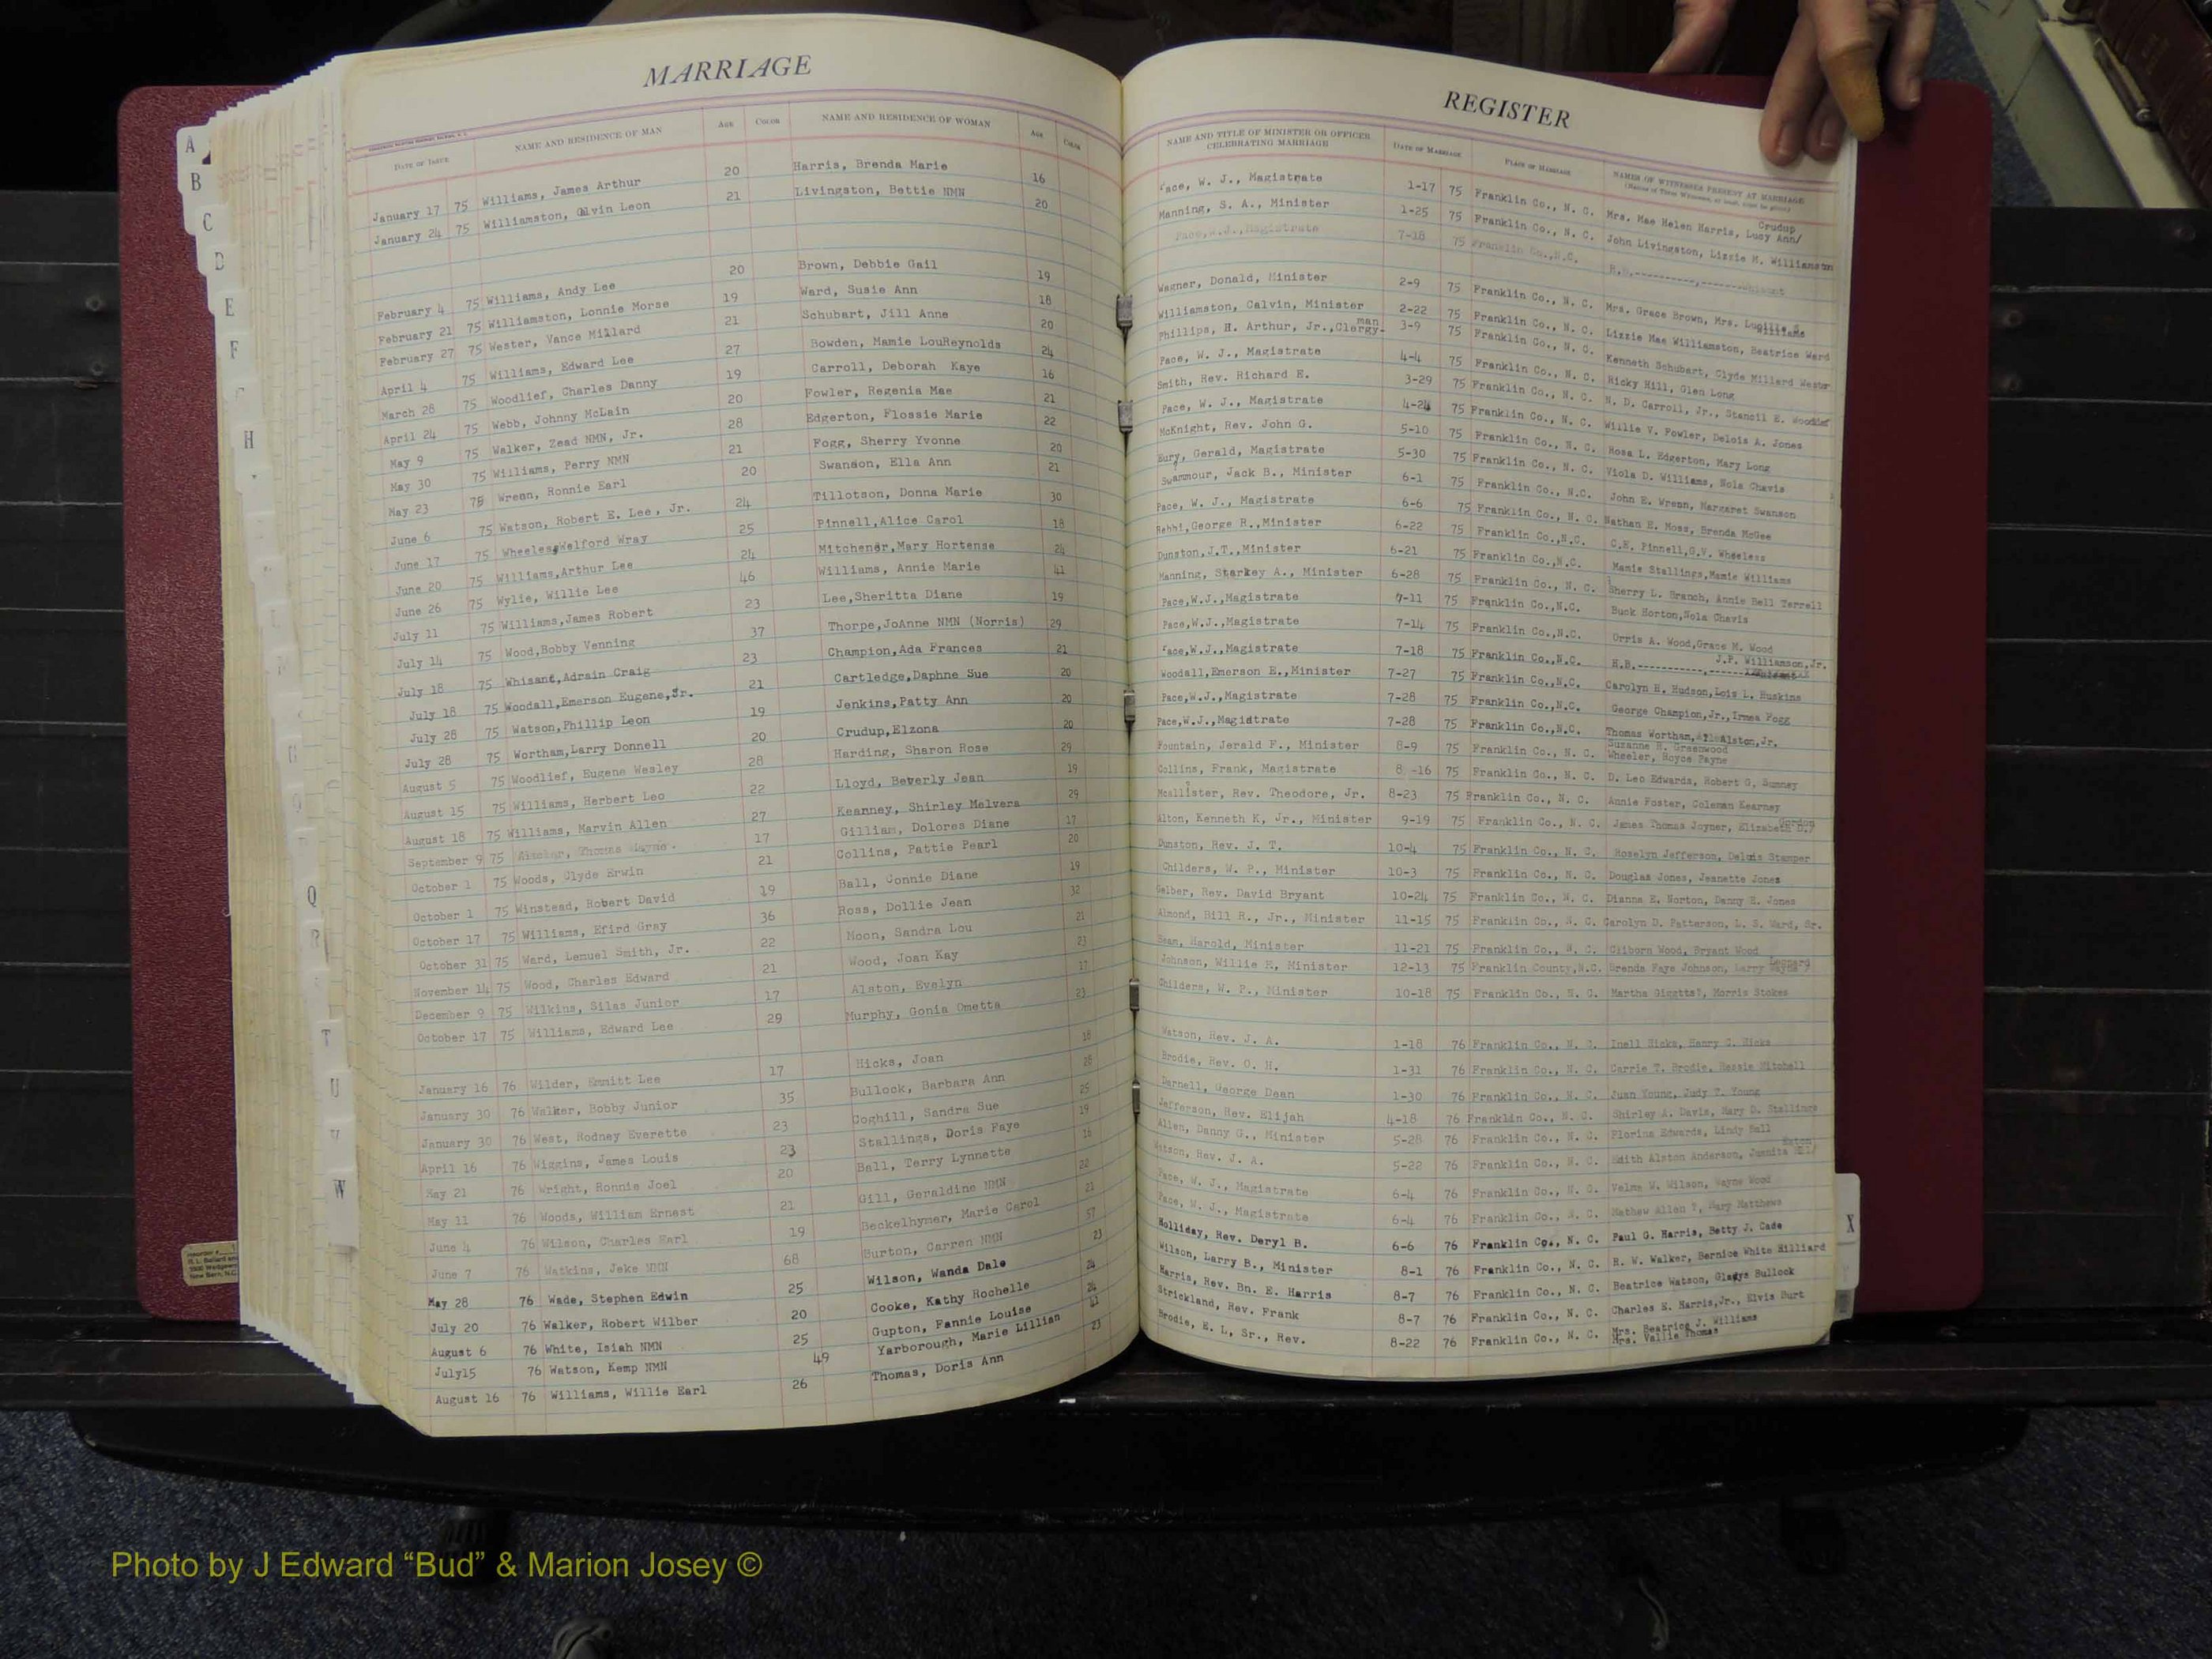 MARRIAGE
DATE OF ISSUE NAME AND RESIDENCE OF MAN AGE COLOR NAME AND RESIDENCE OF WOMAN AGE COLOR
January 17 75 Williams, James Arthur 20 Harris, Brenda Marie 16
January 24 75 Williamston, Calvin Leon 21 Livingston, Bettie NMN 20
February 4 75 Williams, Andy Lee 20 Brown, Debbie Gail 19
February 21 75 Williamston, Lonnie Morse 19 Ward, Susie Ann 18
February 27 75 Wester, Vance Millard 21 Schubart, Jill Anne 20
April 4 75 Williams, Edward Lee 27 Bowden, Mamie LouReynolds 24
March 28 75 Woodlief, Charles Danny 19 Carroll, Deborah Kaye 16
April 24 75 Webb, Johnny McLain 20 Fowler, Regenia Mae 21
May 9 75 Walker, Zead NMN, Jr. 28 Edgerton, Flossie Marie 22
May 30 75 Williams, Perry NMN 21 Fogg, Sherry Yvonne 20
May 23 75 Wrenn, Ronnie Earl 20 Swanson, Ella Ann 21
June 6 75 Watson, Robert E. Lee, Jr. 24 Tillotson, Donna Marie 30
June 17 75 Wheless,Welford Wray 25 Pinnell,Alice Carol 18
June 20 75 Williams,Arthur Lee 24 Mitchener,Mary Hortense 24
June 26 75 Wylie, Willie Lee 46 Williams, Annie Marie 41
July 11 75 Williams,James Robert 23 Lee,Sheritta Diane 19
July 14 75 Wood,Bobby Venning 37 Thorpe,JoAnne NMN (Norris) 29
July 18 75 Whisant,Adrain Craig 23 Champion,Ada Frances 21
July 18 75 Woodall,Emerson Eugene,Jr. 21 Cartledge,Daphne Sue 20
July 28 75 Watson,Phillip Leon 19 Jenkins,Patty Ann 20
July 28 75 Wortham,Larry Donnell 20 Crudup,Elzona 20
August 5 75 Woodlief, Eugene Wesley 28 Harding, Sharon Rose 29
August 15 75 Williams, Herbert Leo 22 Lloyd, Beverly Jean 19
August 18 75 Williams, Marvin Allen 27 Kearney, Shirley Melvera 29
September 9 75 Thomas Wayne 17 Gilliam, Dolores Diane 17
October 1 75 Woods, Clyde Erwin 21 Collins, Pattie Pearl 20
October 1 75 Winstead, Robert David 19 Ball, Connie Diane 19
October 17 75 Williams, Efird Gray 36 Ross, Dollie Jean 32
October 31 75 Ward, Lemuel Smith, Jr. 22 Moon, Sandra Lou 21
November 14 75 Wood, Charles Edward 21 Wood, Joan Kay 23
December 9 75 Wilkins, Silas Junior 17 Alston, Evelyn 17
October 17 75 Williams, Edward Lee 29 Murphy, Gonia Ometta 23
January 16 76 Wilder, Emmitt Lee 17 Hicks, Joan 18
January 30 76 Walker, Bobby Junior 35 Bullock, Barbara Ann 28
January 30 76 West, Rodney Everette 23 Coghill, Sandra Sue 25
April 16 76 Wiggins, James Louis 23 Stallings, Doris Faye 19
May 21 76 Wright, Ronnie Joel 20 Ball, Terry Lynnette 16
May 11 76 Woods, William Ernest 21 Gill, Geraldine NMN 22
June 4 76 Wilson, Charles Earl 19 Beckelhymer, Marie Carol 21
June 7 76 Watkins, Jeke NMN 68 Burton, Carren NMN 57
May 28 76 Wade, Stephen Edwin 25 Wilson, Wanda Dale 23
July 20 76 Walker, Robert Wilber 20 Cooke, Kathy Rochelle 24
August 6 76 White, Isiah NMN 25 Gupton, Fannie Louise 24
July15 76 Watson, Kemp NMN 49 Yarborough, Marie Lillian
August 16 76 Williams, Willie Earl 26 Thomas, Doris Ann 23
REGISTER
NAME AND TITLE OF MINISTER OR OFFICER CELEBRATING MARRIAGE DATE OF MARRIAGE PLACE OF MARRIAGE NAMES OF WITNESSES PRESENT AT MARRIAGE
Crudup
Pace, W. J., Magistrate 1-17 75 Franklin Co., N. C. Mrs. Mae Helen Harris, Lucy Ann/
Manning, S. A., Minister 1-25 75 Franklin Co., N. C. John Livingston, Lizzie H. Williamston
Pace,W.J.,Magistrate 7-18 75 Franklin Co.,N.C.
Wagner, Donald, Minister 2-9 75 Franklin Co., N. C. Mrs. Grace Brown, Mrs. Lucille S. Williams
Williamston, Calvin, Minister 2-22 75 Franklin Co., N. C. Lizzie Mae Williamston, Beatrice Ward
Phillips, H. Arthur, Jr.,Clergy-man 3-9 75 Franklin Co., N. C. Kenneth Schubart, Clyde Millard Wester
Pace, W. J., Magistrate 4-4 75 Franklin Co., N. C. Ricky Hill, Glen Long
Smith, Rev. Richard E. 3-29 75 Franklin Co., N. C. N. D. Carroll, Jr., Stancil E. Woodlief
Pace, W. J., Magistrate 4-24 75 Franklin Co., N. C. Willie V. Fowler, Delois A. Jones
McKnight, Rev. John G. 5-10 75 Franklin Co., N. C. Rosa L. Edgerton, Mary Long
Eury, Gerald, Magistrate 5-30 75 Franklin Co., N. C. Viola D. Williams, Nola Chavis
Swammour, Jack B., Minister 6-1 75 Franklin Co., N.C. John E. Wrenn, Margaret Swanson
Pace, W. J., Magistrate 6-6 75 Franklin Co., N. C. Nathan E. Moss, Brenda McGee
George R.,Minister 6-22 75 Franklin Co.,N.C. C.E. Pinnell,G.V. Wheless
Dunston,J.T.,Minister 6-21 75 Franklin Co.,N.C. Mamie Stallings,Mamie Williams
Manning, Starkey A., Minister 6-28 75 Franklin Co., N. C. Sherry L. Branch, Annie Bell Terrell
Pace,W.J.,Magistrate 7-11 75 Franklin Co.,N.C. Buck Horton,Nola Chavis
Pace,W.J.,Magistrate 7-14 75 Franklin Co.,N.C. Orris A. Wood,Grace M. Wood
Pace,W.J.,Magistrate 7-18 75 Franklin Co.,N.C. H.B.----------,------ J.P. Williamson,Jr.
Woodall,Emerson E.,Minister 7-27 75 Franklin Co.,N.C. Carolyn H. Hudson,Lois L. Huskins
Pace,W.J.,Magistrate 7-28 75 Franklin Co.,N.C. George Champion,Jr.,Irmea Fogg
Pace,W.J.,Magistrate 7-28 75 Franklin Co.,N.C. Thomas Wortham, Alston,Jr.
Fountain, Jerald F., Minister 8-9 75 Franklin Co., N. C. Suzanne H. Greenwood
Wheeler, Royce Payne
Collins, Frank, Magistrate 8 -16 75 Franklin Co., N. C. D. Leo Edwards, Robert G. Bumney
McAllister, Rev. Theodore, Jr. 8-23 75 Franklin Co., N. C. Annie Foster, Coleman Kearney
Alton, Kenneth K, Jr., Minister 9-19 75 Franklin Co., N. C. James Thomas Joyner, Elizabeth D./ Gordon
Dunston, Rev. J. T. 10-4 75 Franklin Co., N. C. Roselyn Jefferson, Delois Stamper
Childers, W. P., Minister 10-3 75 Franklin Co., N. C. Douglas Jones, Jeanette Jones
Rev. David Bryant 10-24 75 Franklin Co., N. C. Dianna E. Norton, Danny E. Jones
Almond, Bill R., Jr., Minister 11-15 75 Franklin Co., N. C. Carolyn D. Patterson, L. S. Ward, Sr.
Harold, Minister 11-21 75 Franklin Co., N. C. Cliborn Wood, Bryant Wood
Johnson, Willie E, Minister 12-13 75 Franklin County,N.C. Brenda Faye Johnson, Larry Wayne/ Leonard
Childers, W. P., Minister 10-18 75 Franklin Co., N. C. Martha Gigetts?, Morris Stokes
Watson, Rev. J. A. 1-18 76 Franklin Co., N. C. Inell Hicks, Henry C. Hicks
Brodie, Rev. O. H. 1-31 76 Franklin Co., N. C. Carrie T. Brodie, Hessie Mitchell
Darnell, George Dean 1-30 76 Franklin Co., N. C. Juan Young, Judy T. Young
Jefferson, Rev. Elijah 4-18 76 Franklin Co., N. C. Shirley A. Davis, Mary D. Stallings
Allen, Danny G., Minister 5-28 76 Franklin Co., N. C. Florine Edwards, Lindy Ball
Watson, Rev. J. A. 5-22 76 Franklin Co., N. C. Edith Alston Anderson, Juanita
Pace, W. J., Magistrate 6-4 76 Franklin Co., N. C. Velma W. Wilson, Wayne Wood
Pace, W. J., Magistrate 6-4 76 Franklin Co., N. C. Mathew Allen ?, Mary Matthews
Holliday, Rev. Deryl B. 6-6 76 Franklin Co., N. C. Paul G. Harris, Betty J. Cade
Wilson, Larry B., Minister 8-1 76 Franklin Co., N. C. R. W. Walker, Bernice White Hilliard
Harris, Rev. Bn. E. Harris 8-7 76 Franklin Co., N. C. Beatrice Watson, Gladys Bullock
Strickland, Rev. Frank 8-7 76 Franklin Co., N. C. Charles E. Harris,Jr., Elvis Burt
Brodie, E. L, Sr., Rev. 8-22 76 Franklin Co., N. C. Mrs. Beatrice J. Williams
Mrs. Vallie Thomas
A
B
C
D
E
F
H
Q
R
T
U
V
W
X
Photo by J Edward “Bud” & Marion Josey ©